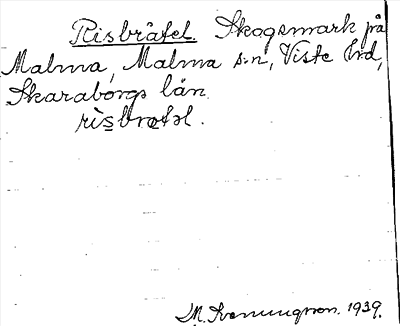 Risbråtel. Skogsmark på
Malma, Malma s:n, Viste hd,
Skaraborgs län.
rìsbrɷtəl.
M. 1939.